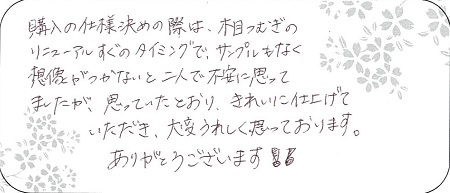 購入の仕様決めの際は、木目つむぎの
リニューアルすぐのタイミングで、サンプルもなく
想像がつかないと二人で不安に思って
ましたが、思っていたとおり、きれいに仕上げて
いただき、大変うれしく思っております。
ありがとうございます